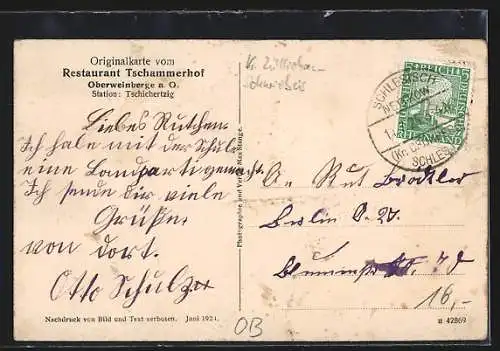 Originalkarte vom
Restaurant Tschammerhof
Oberweinberge a. O.
Station: Tschichertzig
Liebes Rutchen.
Ich habe mit der Schule
eine Landparti gemacht.
Ich sende dir viele
Grüße
von dort.
Otto Schulze
Nachdruck von Bild und Text verboten. Juni 1924.
Photographie und Verlag Max Stange.
Kr. Züllichau-
Schwiebus
DEUTSCHES REICH
SCHLESISCH
SCHLES
An Rut
Berlin O. 27.
16,-
OB
B 42869